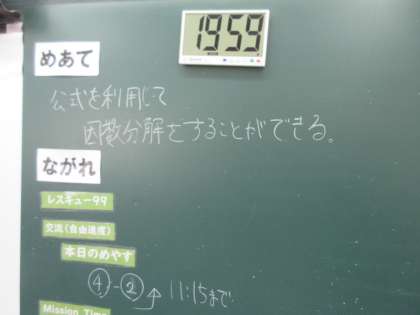 19 59
めあて
公式を利用して
因数分解をすることができる。
ながれ
レスキュー99
交流(自由進度)
本日のめやす
④-② 11:15まで
Mission Time